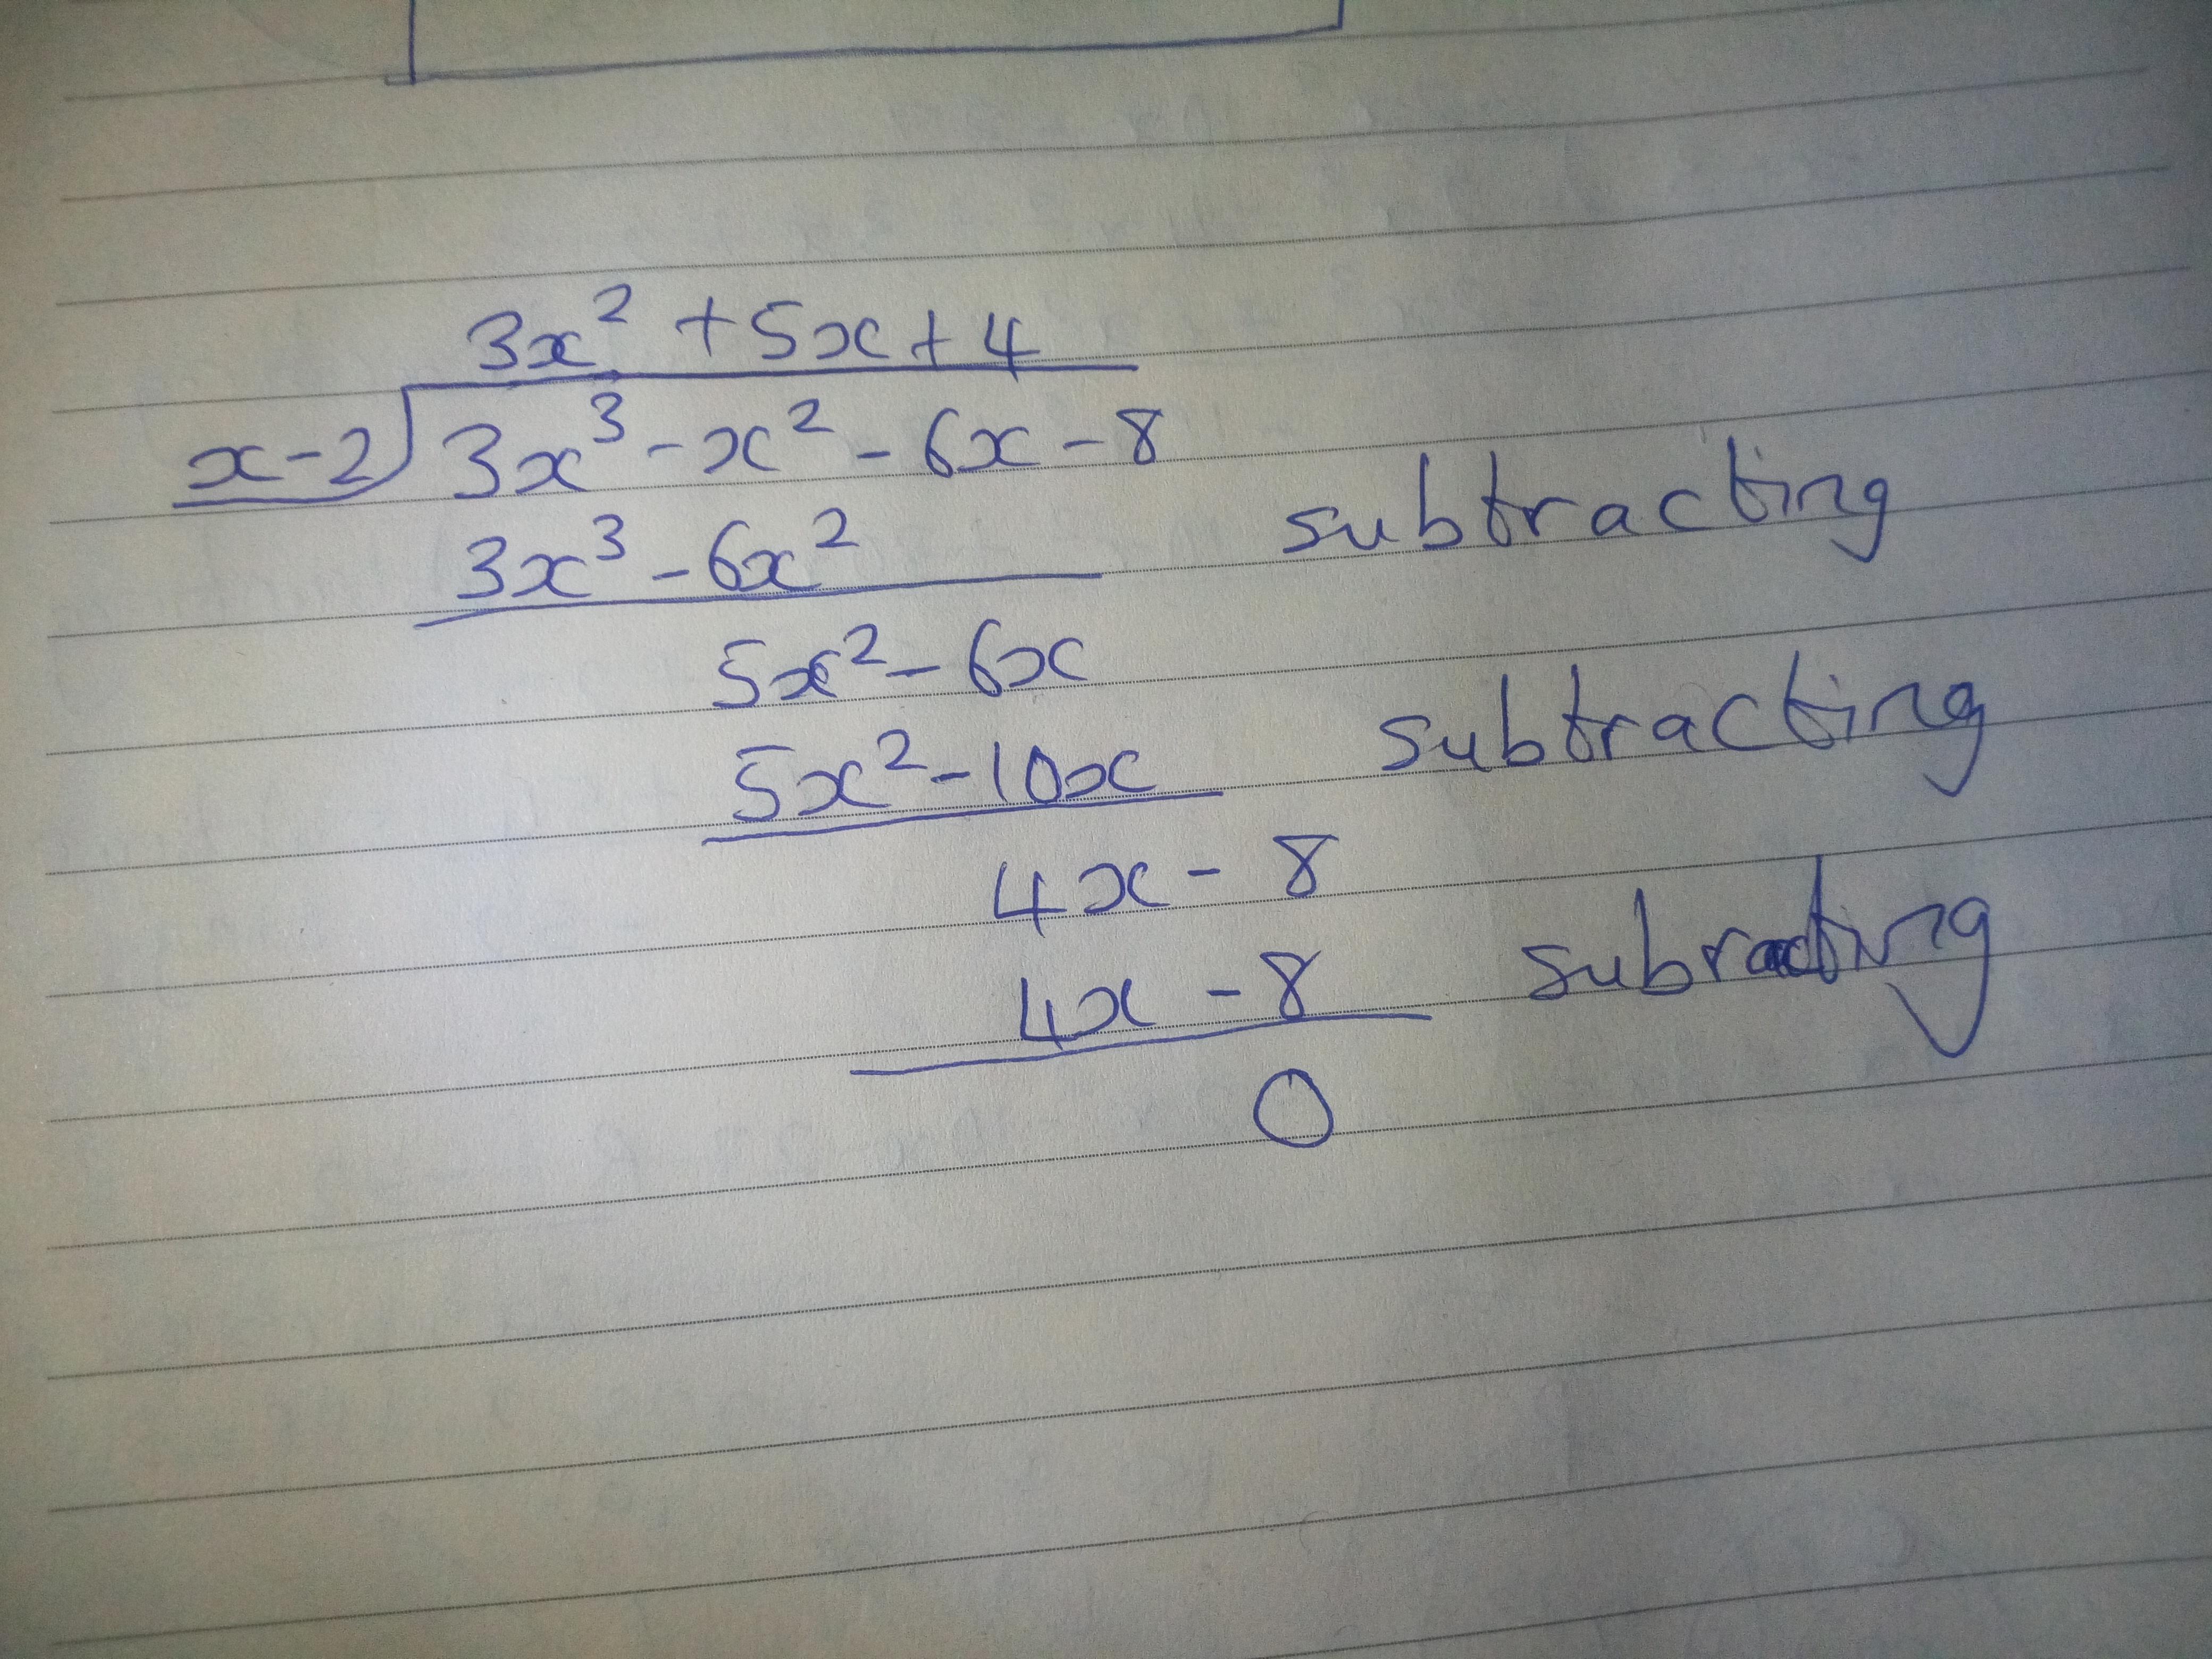 3x² + 5x + 4
x - 2 3x³ - x² - 6x - 8
3x³ - 6x² subtracting
5x² - 6x
5x² - 10x subtracting
4x - 8
4x - 8 subracting
0